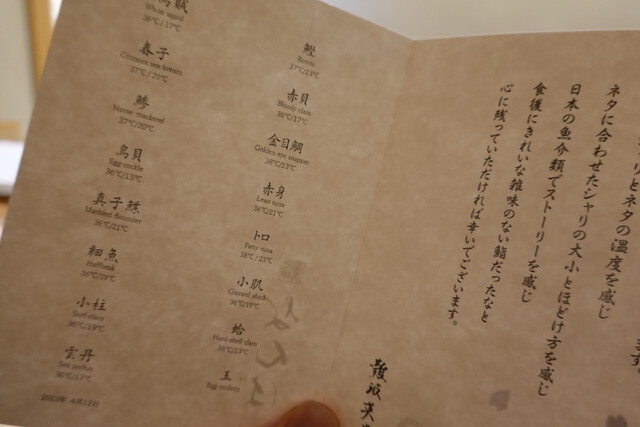 烏賊
Whole squid
36℃/17℃
春子
Crimson sea-bream
37℃/20℃
鯵
Horse-mackerel
37℃/20℃
鳥貝
Egg-cockle
36℃/15℃
真子鰈
Marbled flounder
36℃/21℃
細魚
Halfbeak
36℃/19℃
小柱
Surf-clam
36℃/19℃
雲丹
Sea urchin
36℃/17℃
鰹
Bonito
37℃/23℃
赤貝
Bloody clam
36℃/17℃
金目鯛
Golden eye snapper
38℃/23℃
赤身
Lean tuna
36℃/21℃
トロ
Fatty tuna
38℃/23℃
小肌
Gizzard shad
36℃/19℃
蛤
Hard-shell clam
38℃/23℃
玉
Egg omlette
2023年 4月17日
リとネタの温度を感じ
ネタに合わせたシャリの大小とほどけ方を感じ
日本の魚介類でストーリーを感じ
食後にきれいな雑味のない鮨だったなと
心に残っていただければ幸いでございます。
難波英
なんば